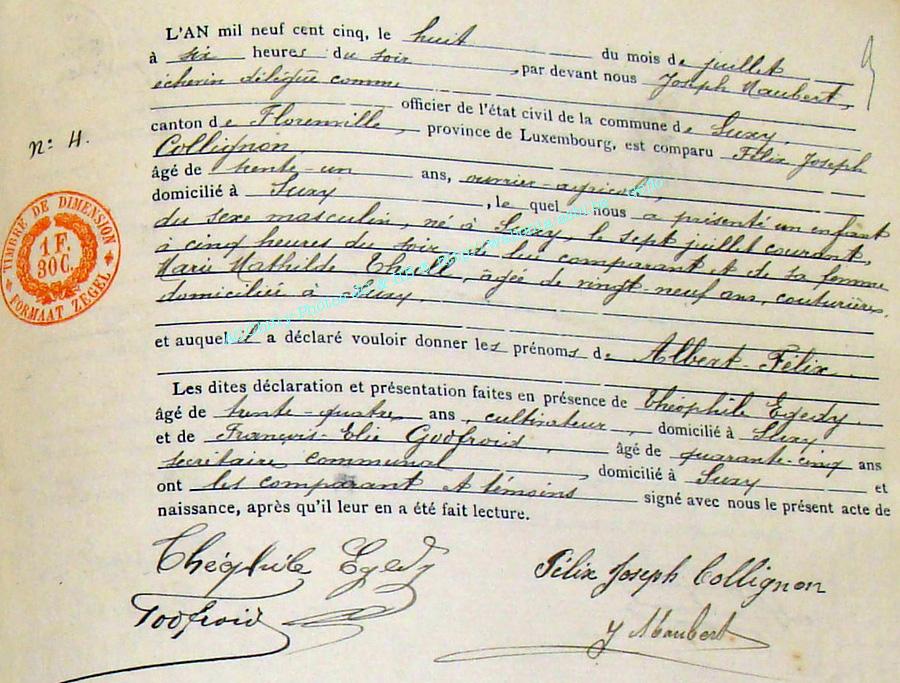 L'AN mil neuf cent cinq, le huit du mois de juillet
à six heures du soir, par devant nous Joseph Maubert,
échevin délégué comme
officier de l'état civil de la commune de Suxy,
canton de Florenville, province de Luxembourg, est comparu Félix Joseph
Collignon,
âgé de trente-un ans, ouvrier-agricole,
domicilié à Suxy, le quel nous a présenté un enfant
du sexe masculin, né à Suxy, le sept juillet courant,
à cinq heures du soir, de lui comparant et de sa femme
Marie Mathilde, âgée de vingt-neuf ans, couturière,
domiciliée à Suxy.
et auquel il a déclaré vouloir donner les prénoms de Albert-Félix.
Les dites déclaration et présentation faites en présence de Théophile Egedy
âgé de trente-quatre ans, cultivateur, domicilié à Suxy
et de François-Elie Godfroid, âgé de quarante-cinq ans
secrétaire communal, domicilié à Suxy et
ont les comparant et témoins signé avec nous le présent acte de
naissance, après qu'il leur en a été fait lecture.
Théophile Egedy
Félix Joseph Collignon
Godfroid
J Maubert
N° 4.
TIMBRE DE DIMENSION
1 F.
30C.
FORMAAT ZEGEL